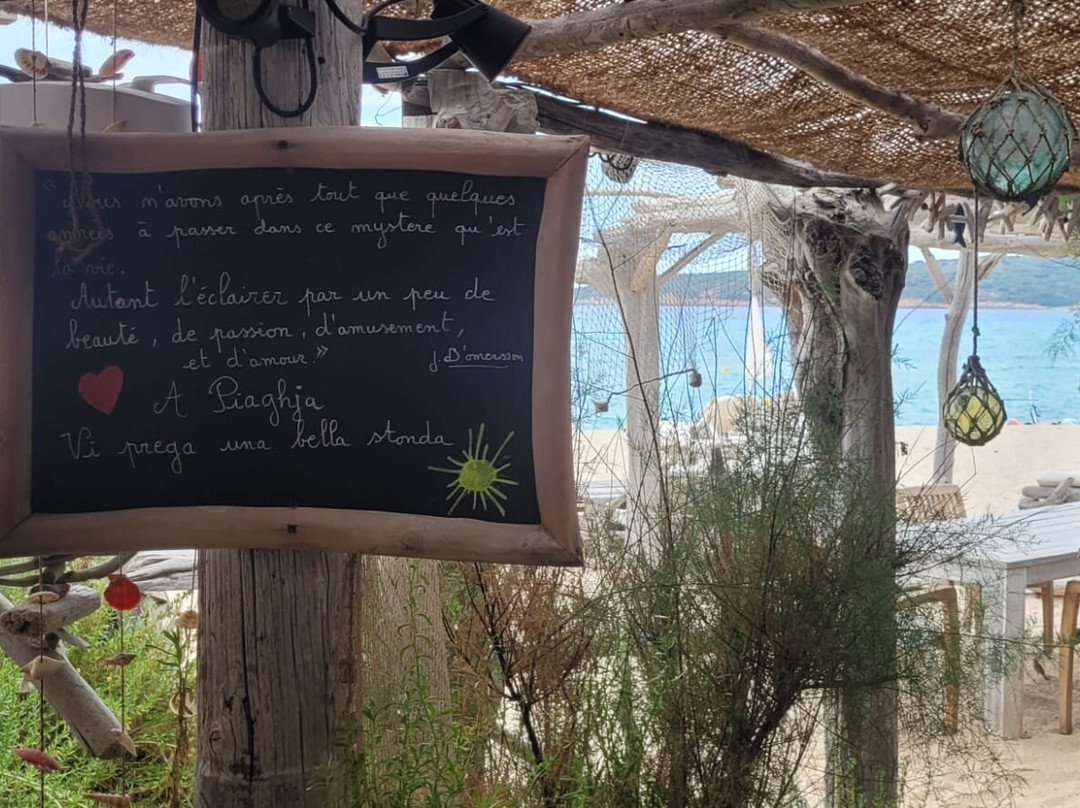 « Nous n'avons après tout que quelques
années à passer dans ce mystère qu'est
la vie.
Autant l'éclairer par un peu de
beauté, de passion, d'amusement,
et d'amour. »
J. D'omersson
A Piaghja
Vi prega una bella stonda